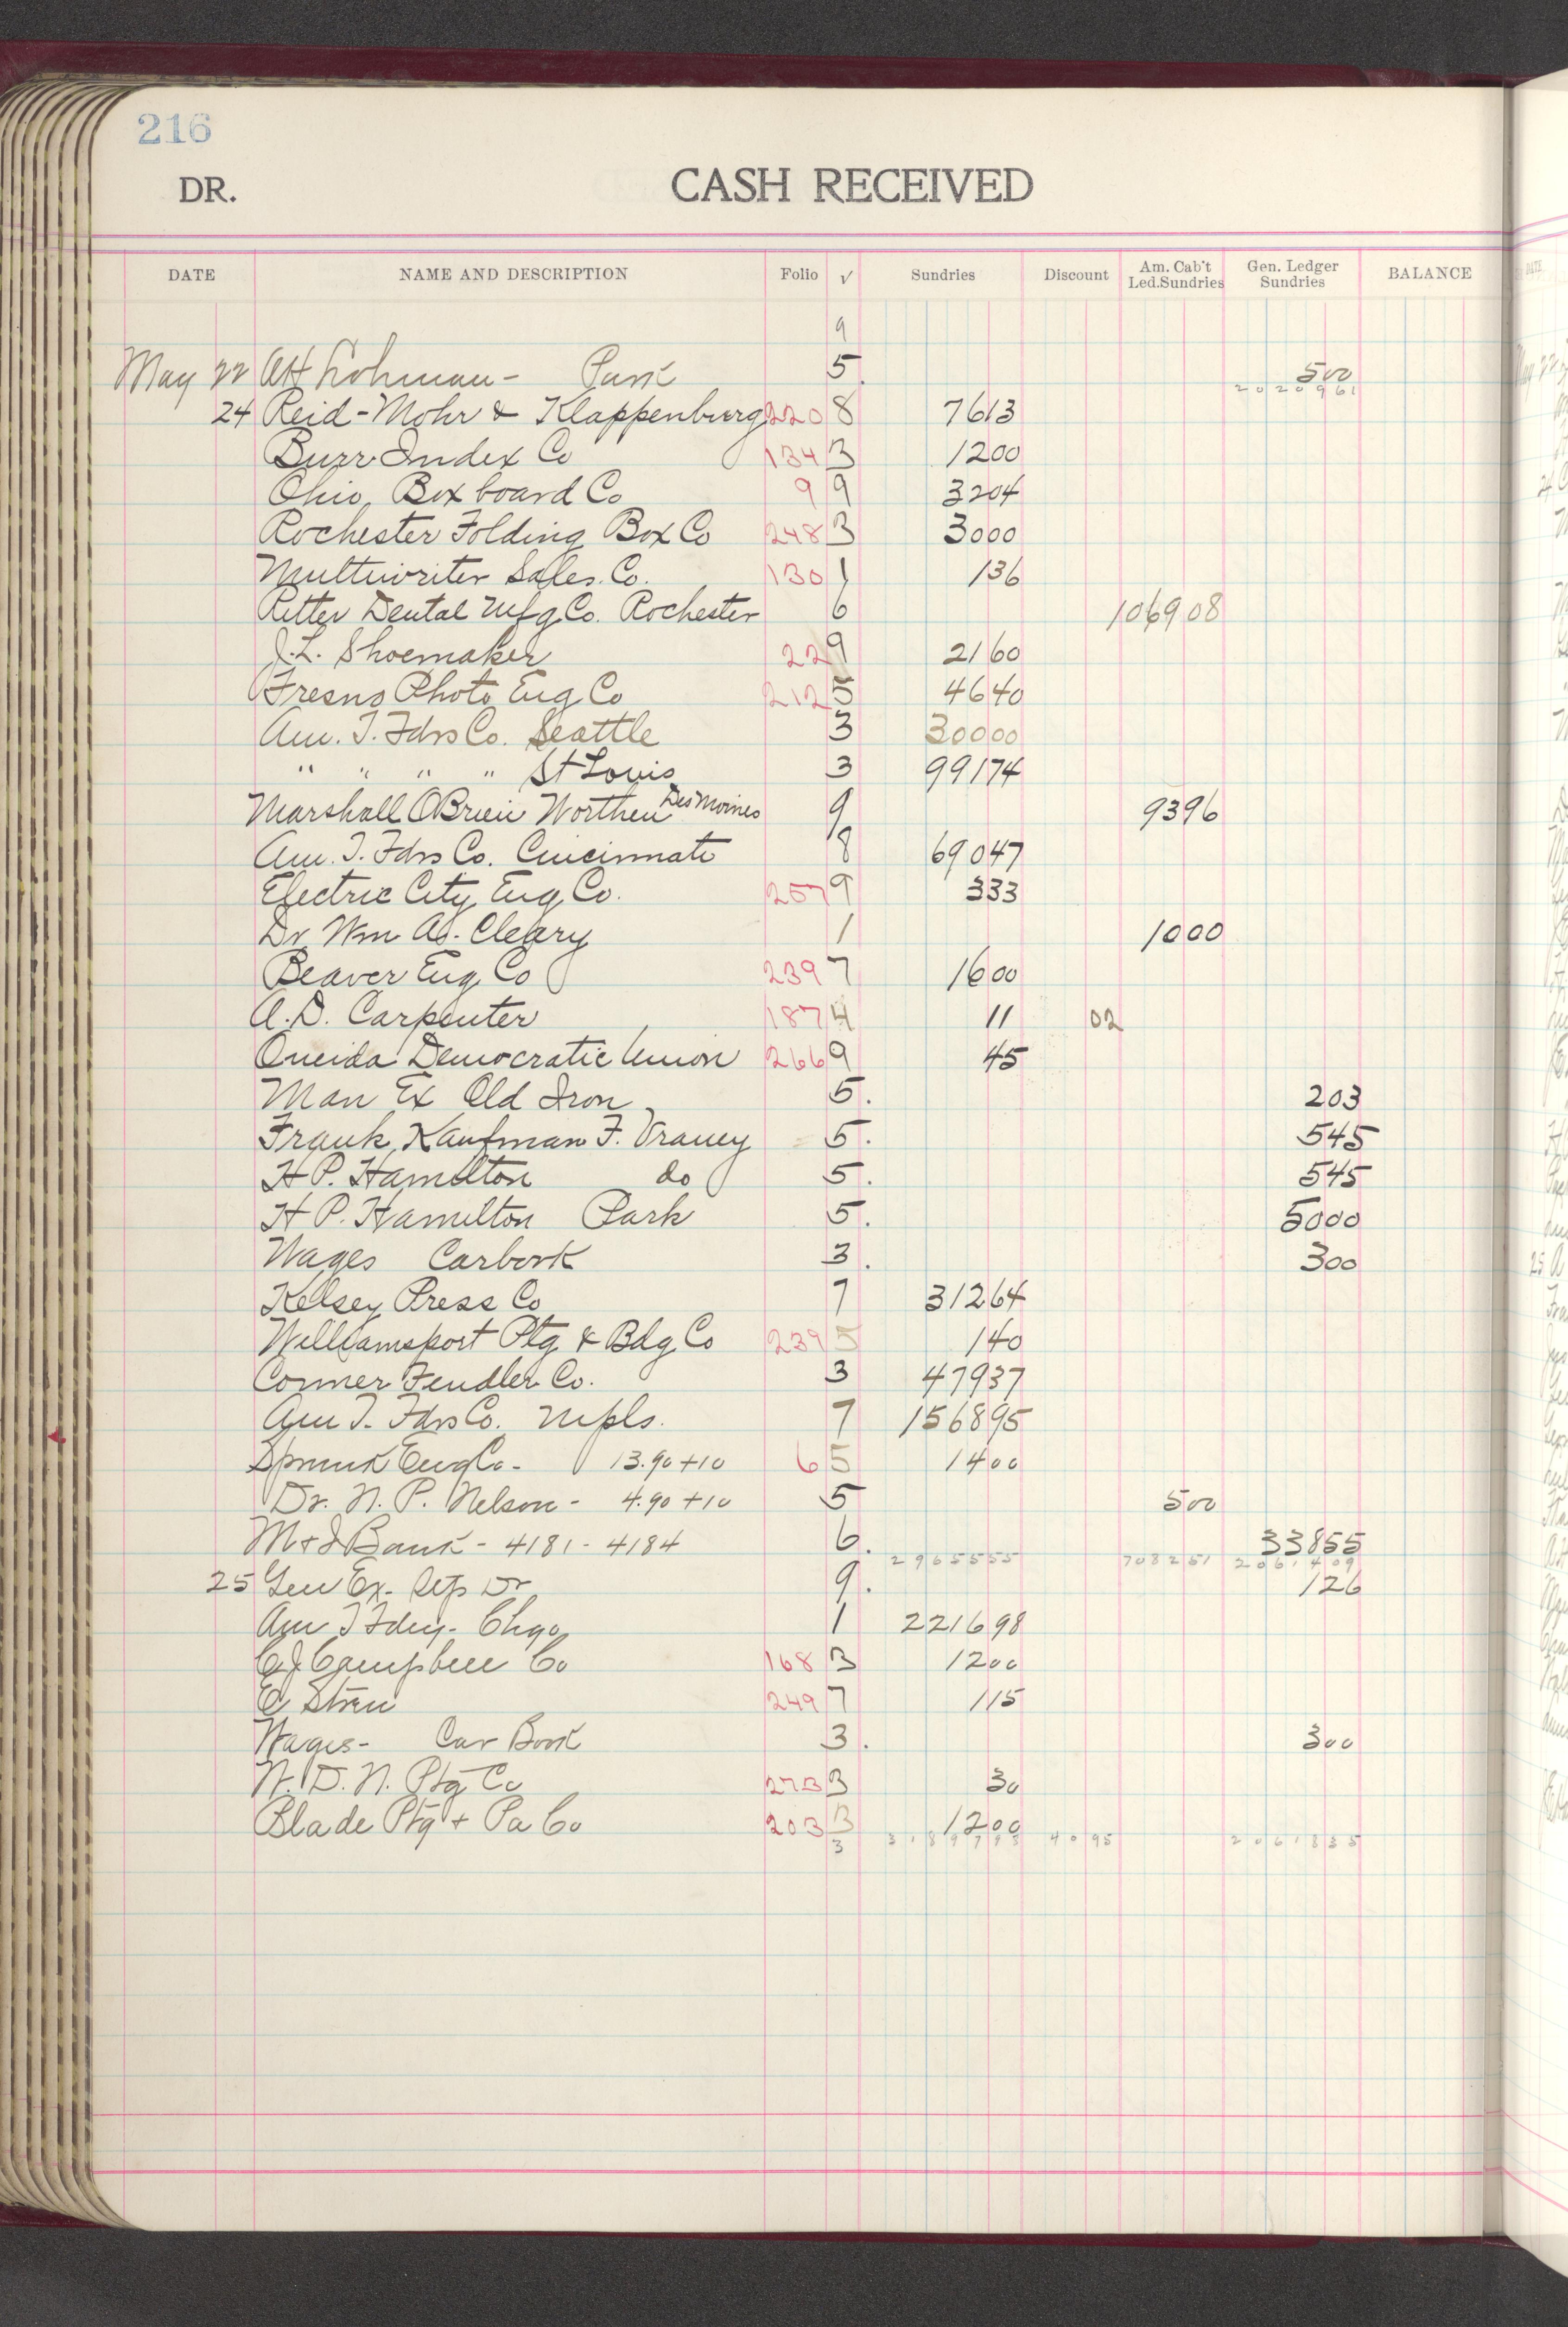 216
DR. CASH RECEIVED
DATE NAME AND DESCRIPTION Folio √ Sundries Discount Am. Cab't Led.Sundries Gen. Ledger Sundries BALANCE
9
May 22 AH Lohman - Park 5. 500
2020961
24 Reid-Mohr & Klappenburg 220 8 7613
Burr Index Co 134 3 1200
Ohio Boxboard Co 9 9 3204
Rochester Folding Box Co 248 3 3000
Multiwriter Sales Co. 130 1 136
Ritter Dental Mfg Co. Rochester 6 106908
J.L. Shoemaker 22 9 2160
Fresno Photo Eng Co 212 5 4640
Am. T. Fdrs Co. Seattle 3 30000
" " " " St Louis 3 99174
Marshall OBrien Worthen Des Moines 9 9396
Am. T. Fdrs Co. Cincinnati 8 69047
Electric City Eng Co. 257 9 333
Dr Wm A. Cleary 1 1000
Beaver Eng Co 239 7 1600
A.D. Carpenter 187 4 11 02
Oneida Democratic Union 266 9 45
Man Ex Old Iron 5. 203
Frank Kaufman F. Vraney 5. 545
H P. Hamilton do 5. 545
H P. Hamilton Park 5. 5000
Wages Carbook 3. 300
Kelsey Press Co 7 31264
Williamsport Ptg & Bdg Co 239 5 140
Conner Fendler Co. 3 47937
Am T. Fdrs Co. Mpls. 7 156895
Eng Co - 13.90 + 10 6 5 1400
Dr. N. P. Nelson - 4.90 + 10 5 500
M & I Bank - 4181 - 4184 6. 33855
2965555 708251 2061409
25 Gen Ex- Dr 9. 126
Am T Fdry - Chgo 1 221698
CJ Campbell Co 168 3 1200
249 7 115
Wages - Car Book 3. 300
N. D. N. Ptg Co 273 3 30
Blade Ptg + Pa Co 203 3 1200
3 3189798 4095 2061835